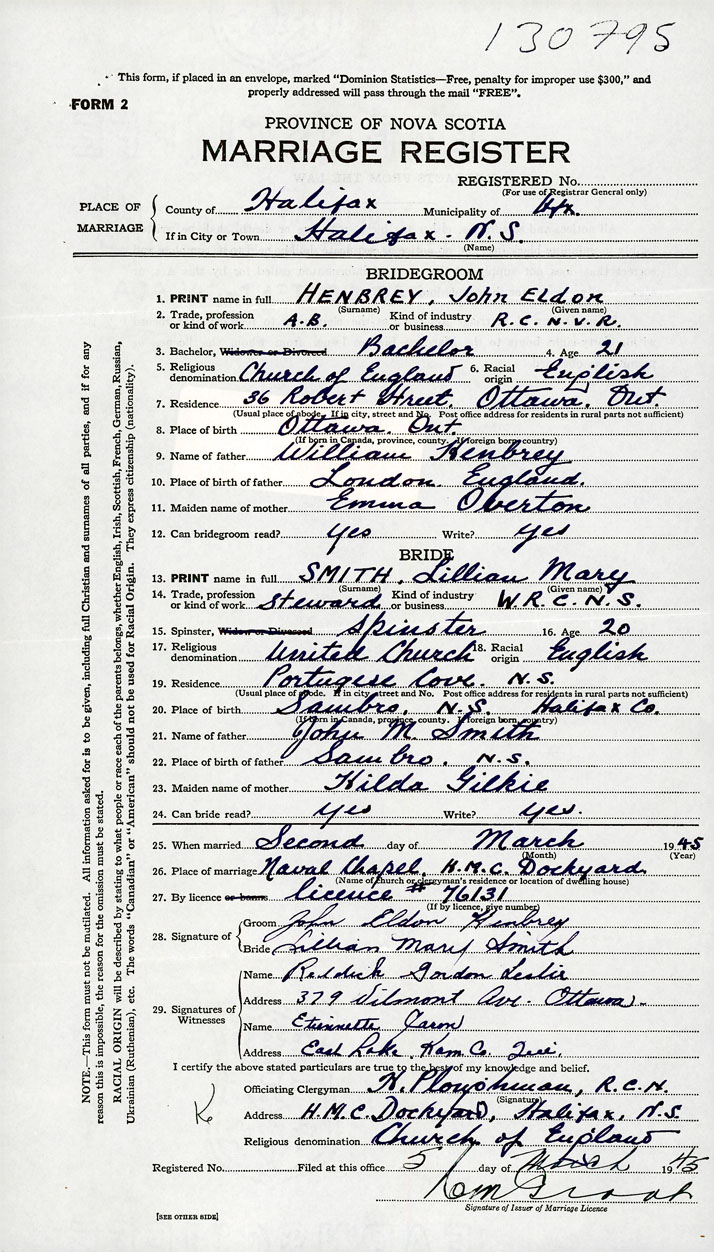 130795
This form, if placed in an envelope, marked "Dominion Statistics—Free, penalty for improper use $300," and
properly addressed will pass through the mail "FREE".
FORM 2
PROVINCE OF NOVA SCOTIA
MARRIAGE REGISTER
REGISTERED No.
(For use of Registrar General only)
PLACE OF MARRIAGE
County of Halifax Municipality of Hfx.
If in City or Town Halifax - N.S.
(Name)
BRIDEGROOM
1. PRINT name in full HENBREY, John Eldon
(Surname) (Given name)
2. Trade, profession or kind of work A.B. Kind of industry or business R.C.N.V.R.
3. Bachelor, Widower or Divorced Bachelor 4. Age 21
5. Religious denomination Church of England 6. Racial origin English
7. Residence 36 Robert Street, Ottawa. Ont
(Usual place of abode. If in city, street and No. Post office address for residents in rural parts not sufficient)
8. Place of birth Ottawa. Ont.
(If born in Canada, province, county. If foreign born, country)
9. Name of father William Henbrey
10. Place of birth of father London. England.
11. Maiden name of mother Emma Overton
12. Can bridegroom read? yes Write? yes
BRIDE
13. PRINT name in full SMITH, Lillian Mary
(Surname) (Given name)
14. Trade, profession or kind of work Steward Kind of industry or business W.R.C.N.S.
15. Spinster, Widow or Divorced Spinster 16. Age 20
17. Religious denomination United Church 18. Racial origin English
19. Residence Portugese Cove. N.S.
(Usual place of abode. If in city, street and No. Post office address for residents in rural parts not sufficient)
20. Place of birth Sambro, N.S. Halifax Co.
(If born in Canada, province, county. If foreign born, country)
21. Name of father John M Smith
22. Place of birth of father Sambro, N.S.
23. Maiden name of mother Hilda Gilkie
24. Can bride read? yes Write? yes.
25. When married Second day of March 1945
(Month) (Year)
26. Place of marriage Naval Chapel, H.M.C. Dockyard
(Name of church or clergyman's residence or location of dwelling house)
27. By licence or banns licence # 76131
(If by licence, give number)
28. Signature of
Groom John Eldon Henbrey
Bride Lillian Mary Smith
29. Signatures of Witnesses
Name Gordon Leslie
Address 379 Ave. Ottawa.
Name Etiennette
Address East Lake, Kam Co. Que.
I certify the above stated particulars are true to the best of my knowledge and belief.
Officiating Clergyman H. Ploughman, R.C.N.
(Signature)
Address H.M.C. Dockyard, Halifax, N.S.
Religious denomination Church of England
Registered No. Filed at this office 5 day of March 1945
Signature of Issuer of Marriage Licence
[SEE OTHER SIDE]
NOTE.—This form must not be mutilated. All information asked for is to be given, including full Christian and surnames of all parties, and if for any
reason this is impossible, the reason for the omission must be stated.
RACIAL ORIGIN will be described by stating to what people or race each of the parents belongs, whether English, Irish, Scottish, French, German, Russian,
Ukrainian (Ruthenian), etc. The words "Canadian" or "American" should not be used for Racial Origin. They express citizenship (nationality).